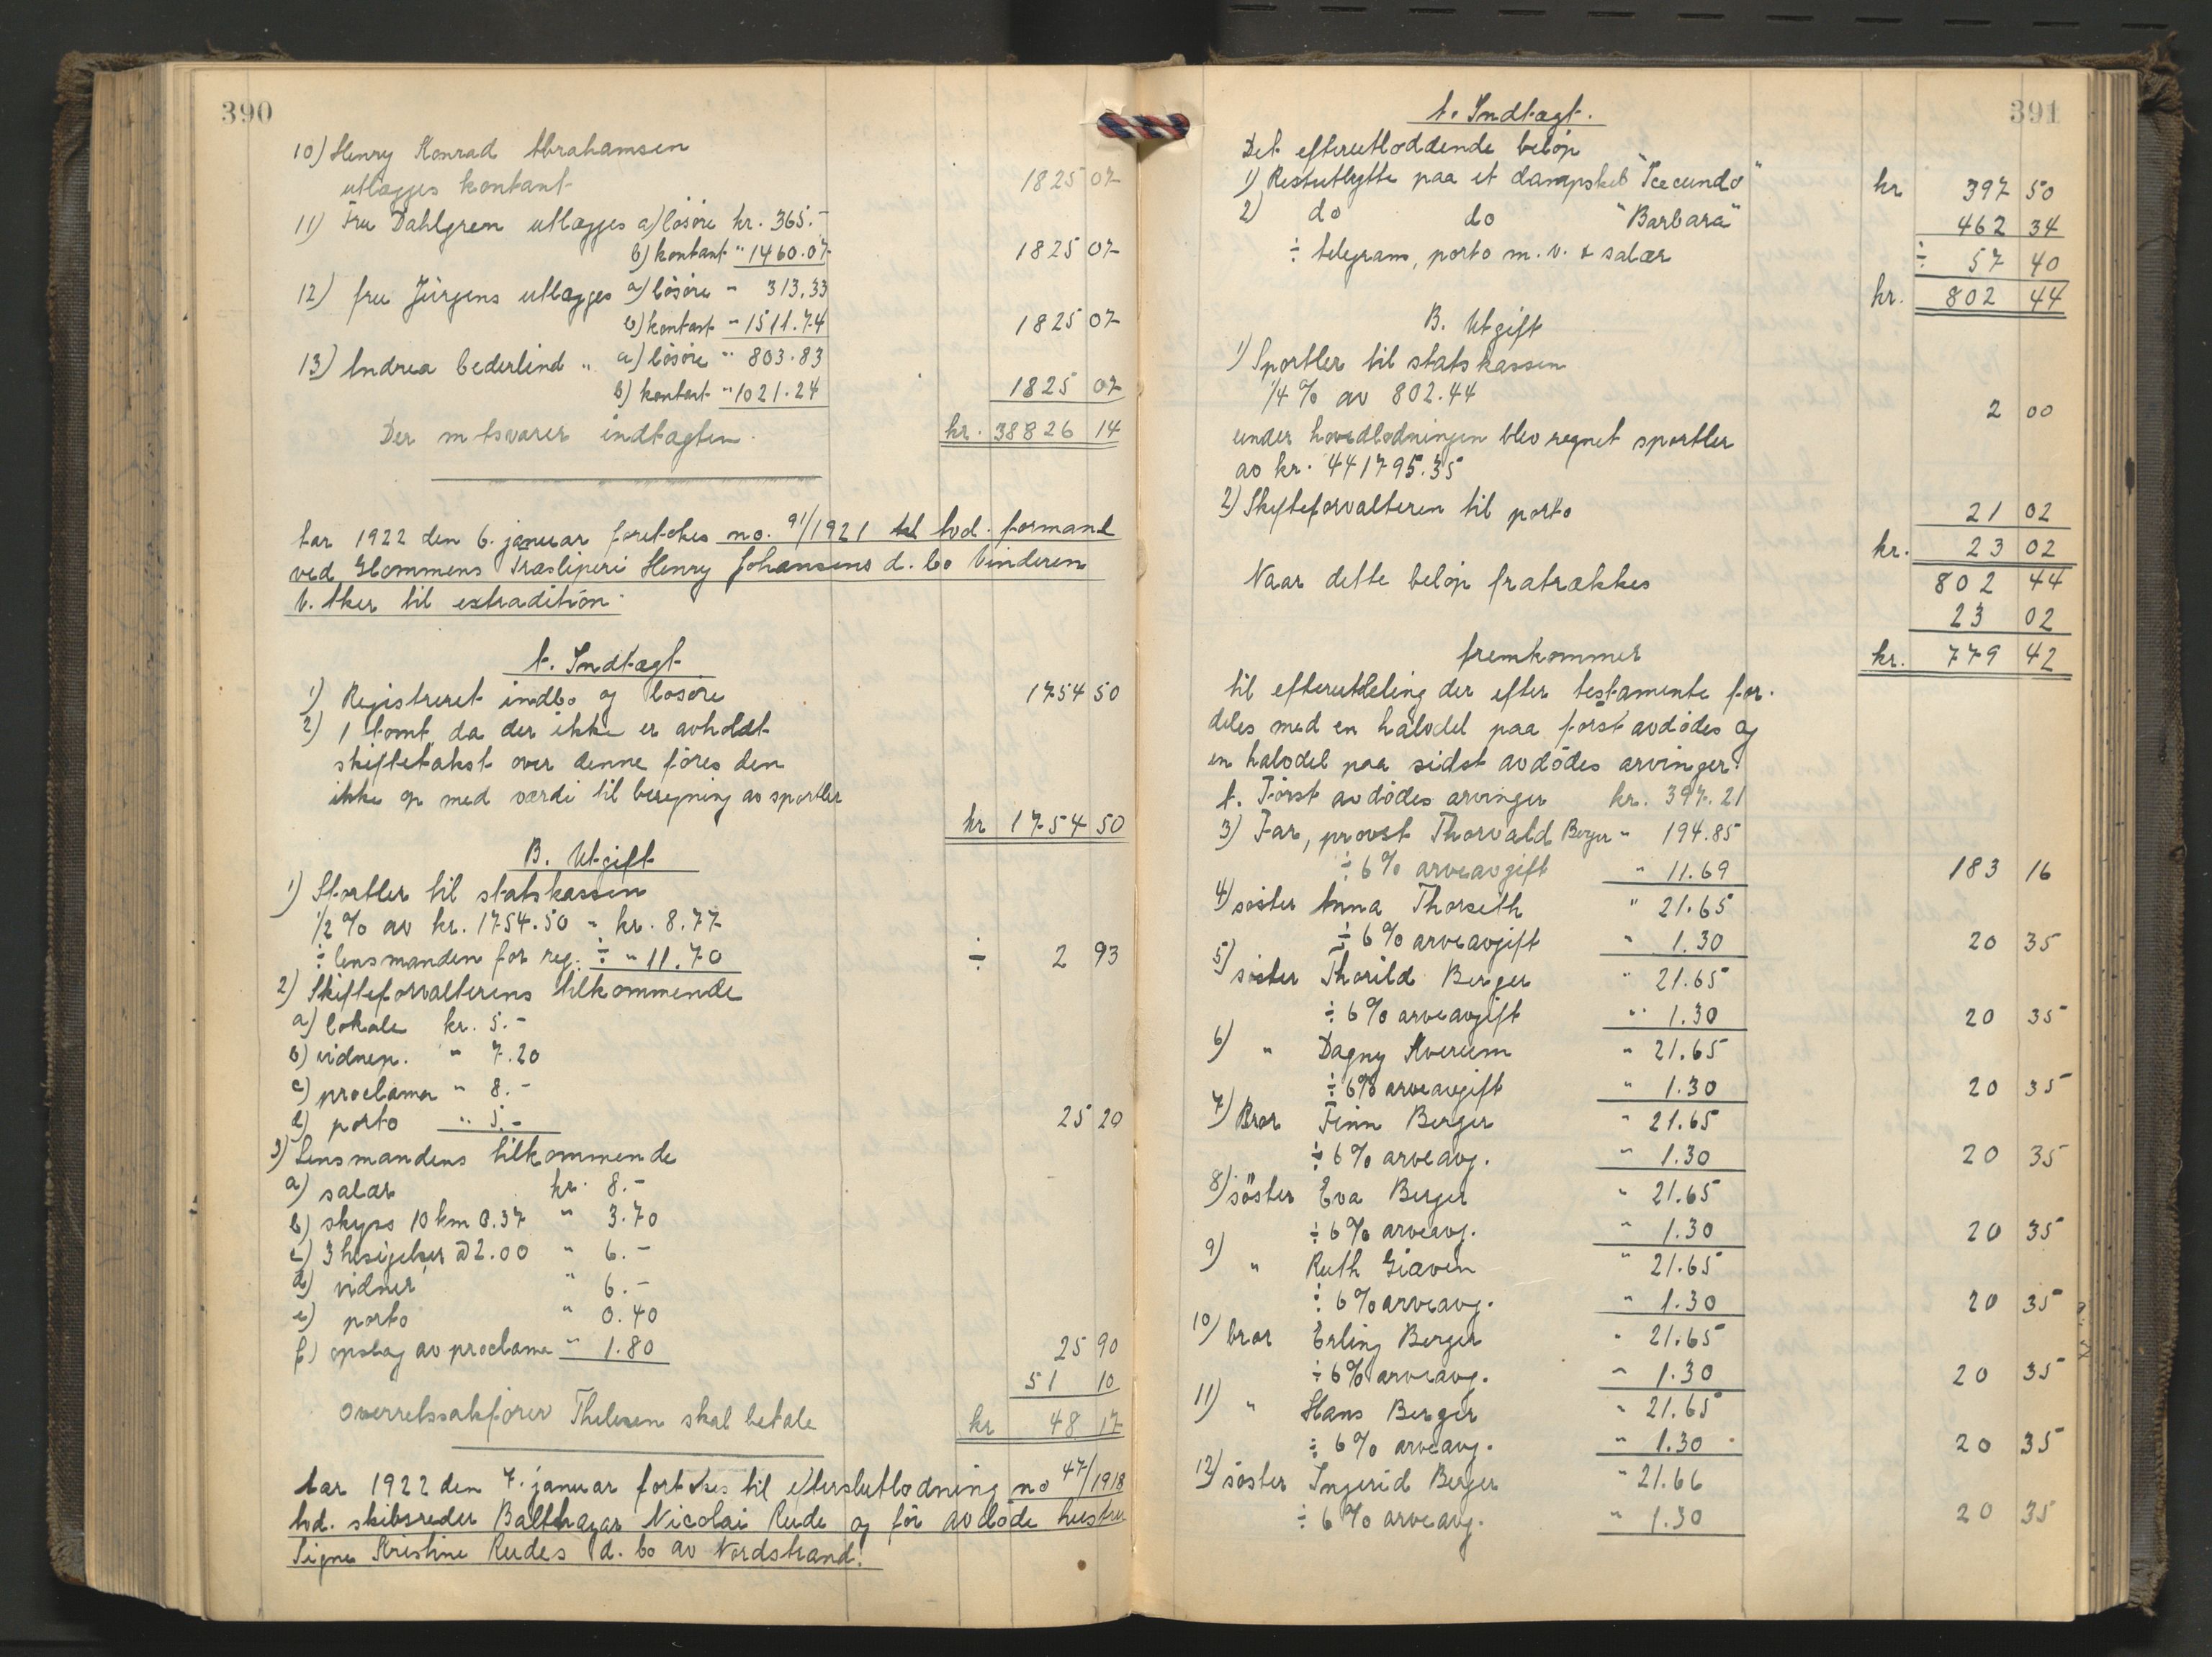 390
10) Henry Konrad Abrahamsen
utlægges kontant 1825 07
11) Fru Dahlgren utlægges a) løsøre kr. 365.-
b) kontant " 1460.07 1825 07
12) fru Jürgens utlægges a) løsøre " 313.33
b) kontant " 1511.74 1825 07
13) Andrea Cederlind " a) løsøre " 803.83
b) kontant " 1021.24 1825 07
Der motsvarer indtægten kr. 38826 14
Aar 1922 den 6. januar foretokes no. 91/1921 avd. formand
ved Glommens Træsliperi Henry Johansens d. bo Vinderen
V. Aker til extradition.
A. Indtægt
1) Registreret indbo og løsøre 1754 50
2) 1 tomt, da der ikke er avholdt
skiftetakst over denne føres den
ikke op med værdi til beregning av sportler
kr 1754 50
B. Utgift
1) Sportler til statskassen
1/2 % av kr. 1754.50 - kr. 8.77
÷ lensmanden for reg. ÷ " 11.70 ÷ 2 93
2) Skifteforvalterens tilkommende
a) lokale kr. 5.-
b) vidnep. " 7.20
c) proclama " 8.-
d) porto " 5.- 25 20
3) Lensmandens tilkommende
a) salær kr. 8.-
b) skyss 10 km 0.37 " 3.70
c) 3 hesigelser a 2.00 " 6.-
d) vidner " 6.-
e) porto " 0.40
f) opslag av proclama " 1.80 25 90
51 10
Overretssakfører Thelesen skal betale kr 48 17
Aar 1922 den 7. januar fortokes til efterslutlodning no 47/1918
avd. skibsreder Balthazar Nicolai Rude og før avdøde hustru
Signe Kristine Rudes d. bo av Nordstrand.
391
A. Indtægt.
Det efterutloddende beløp
1) Restutbytte paa et dampskib "Secundo" kr 397 50
2) do do "Barbara" 462 34
÷ telegram, porto m. v. & salær ÷ 57 40
kr. 802 44
B. Utgift
1) Sportler til statskassen
1/4 % av 802.44 2 00
under hovedlodningen blev regnet sportler
av kr. 441795.35
2) Skifteforvalteren til porto 21 02
kr. 23 02
Naar dette beløp fratrækkes 802 44
23 02
fremkommer kr. 779 42
til efterutdeling der efter testamente for-
deles med en halvdel paa først avdødes og
en halvdel paa sidst avdødes arvinger.
A. Først avdødes arvinger kr. 397.21
3) Far, provst Thorvald Berger " 194.85
÷ 6% arveavgift " 11.69 183 16
4) søster Anna Thorseth " 21.65
÷ 6% arveavgift " 1.30 20 35
5) søster Thorild Berger " 21.65
÷ 6% arveavgift " 1.30 20 35
6) " Dagny Kverum " 21.65
÷ 6% arveavgift " 1.30 20 35
7) Bror Finn Berger " 21.65
÷ 6% arveavg. " 1.30 20 35
8) søster Eva Berger " 21.65
÷ 6% arveavg. " 1.30 20 35
9) " Ruth Giæven " 21.65
÷ 6% arveavg. " 1.30 20 35
10) bror Erling Berger " 21.65
÷ 6% arveavg. " 1.30 20 35
11) " Hans Berger " 21.65
÷ 6% arveavg. " 1.30 20 35
12) søster Ingerid Berger " 21.66
÷ 6% arveavg. " 1.30 20 35